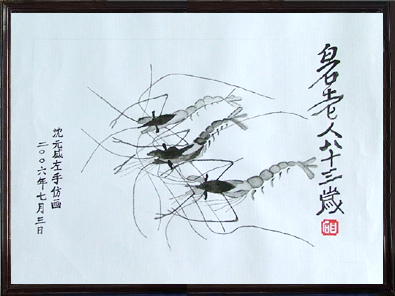 白石老人八十三歲
沈元威左手仿画
二〇〇六年七月三日